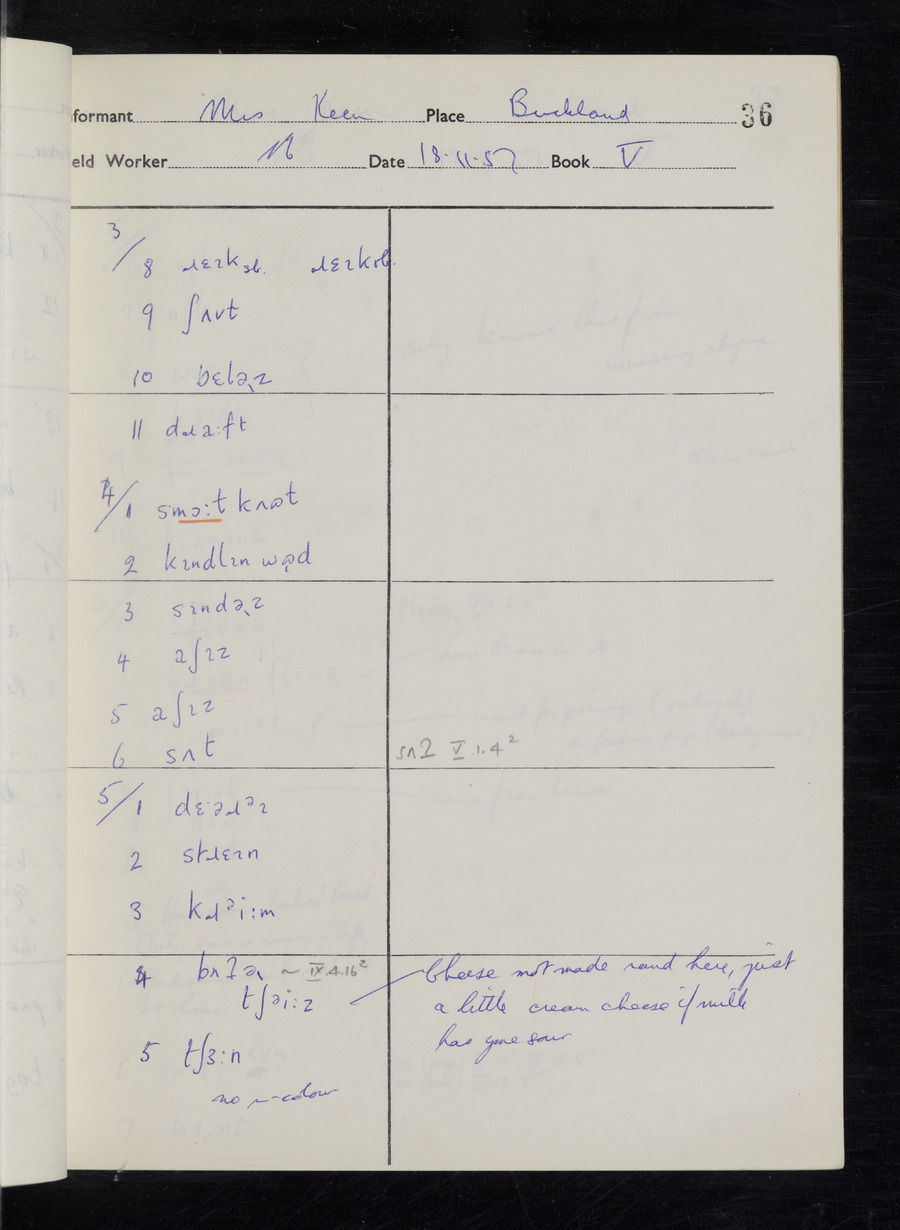 formant Mrs Keen Place Buckland 36
eld Worker Date 18.11.57 Book V
3/8 ɹɛɪk sb. ɹɛɪk vb.
9 ʃʌvt
10 bɛləɻz
11 dɹaːft
4/1 smɔːt kɹɒt
2 kɪndlɪn wɷd
3 sɪndəɻz
4 aʃɪz
5 aʃɪz
6 sʌt sʌʔ V.1.4²
5/1 dɛəɹᵊɪ
2 stɹɛɪn
3 kɹᵊiːm
4 bʌʔəɻ ~ IX.4.16² Cheese not made round here, just
tʃəiːz a little cream cheese if milk
has gone sour
5 tʃɜːn
no r-colour